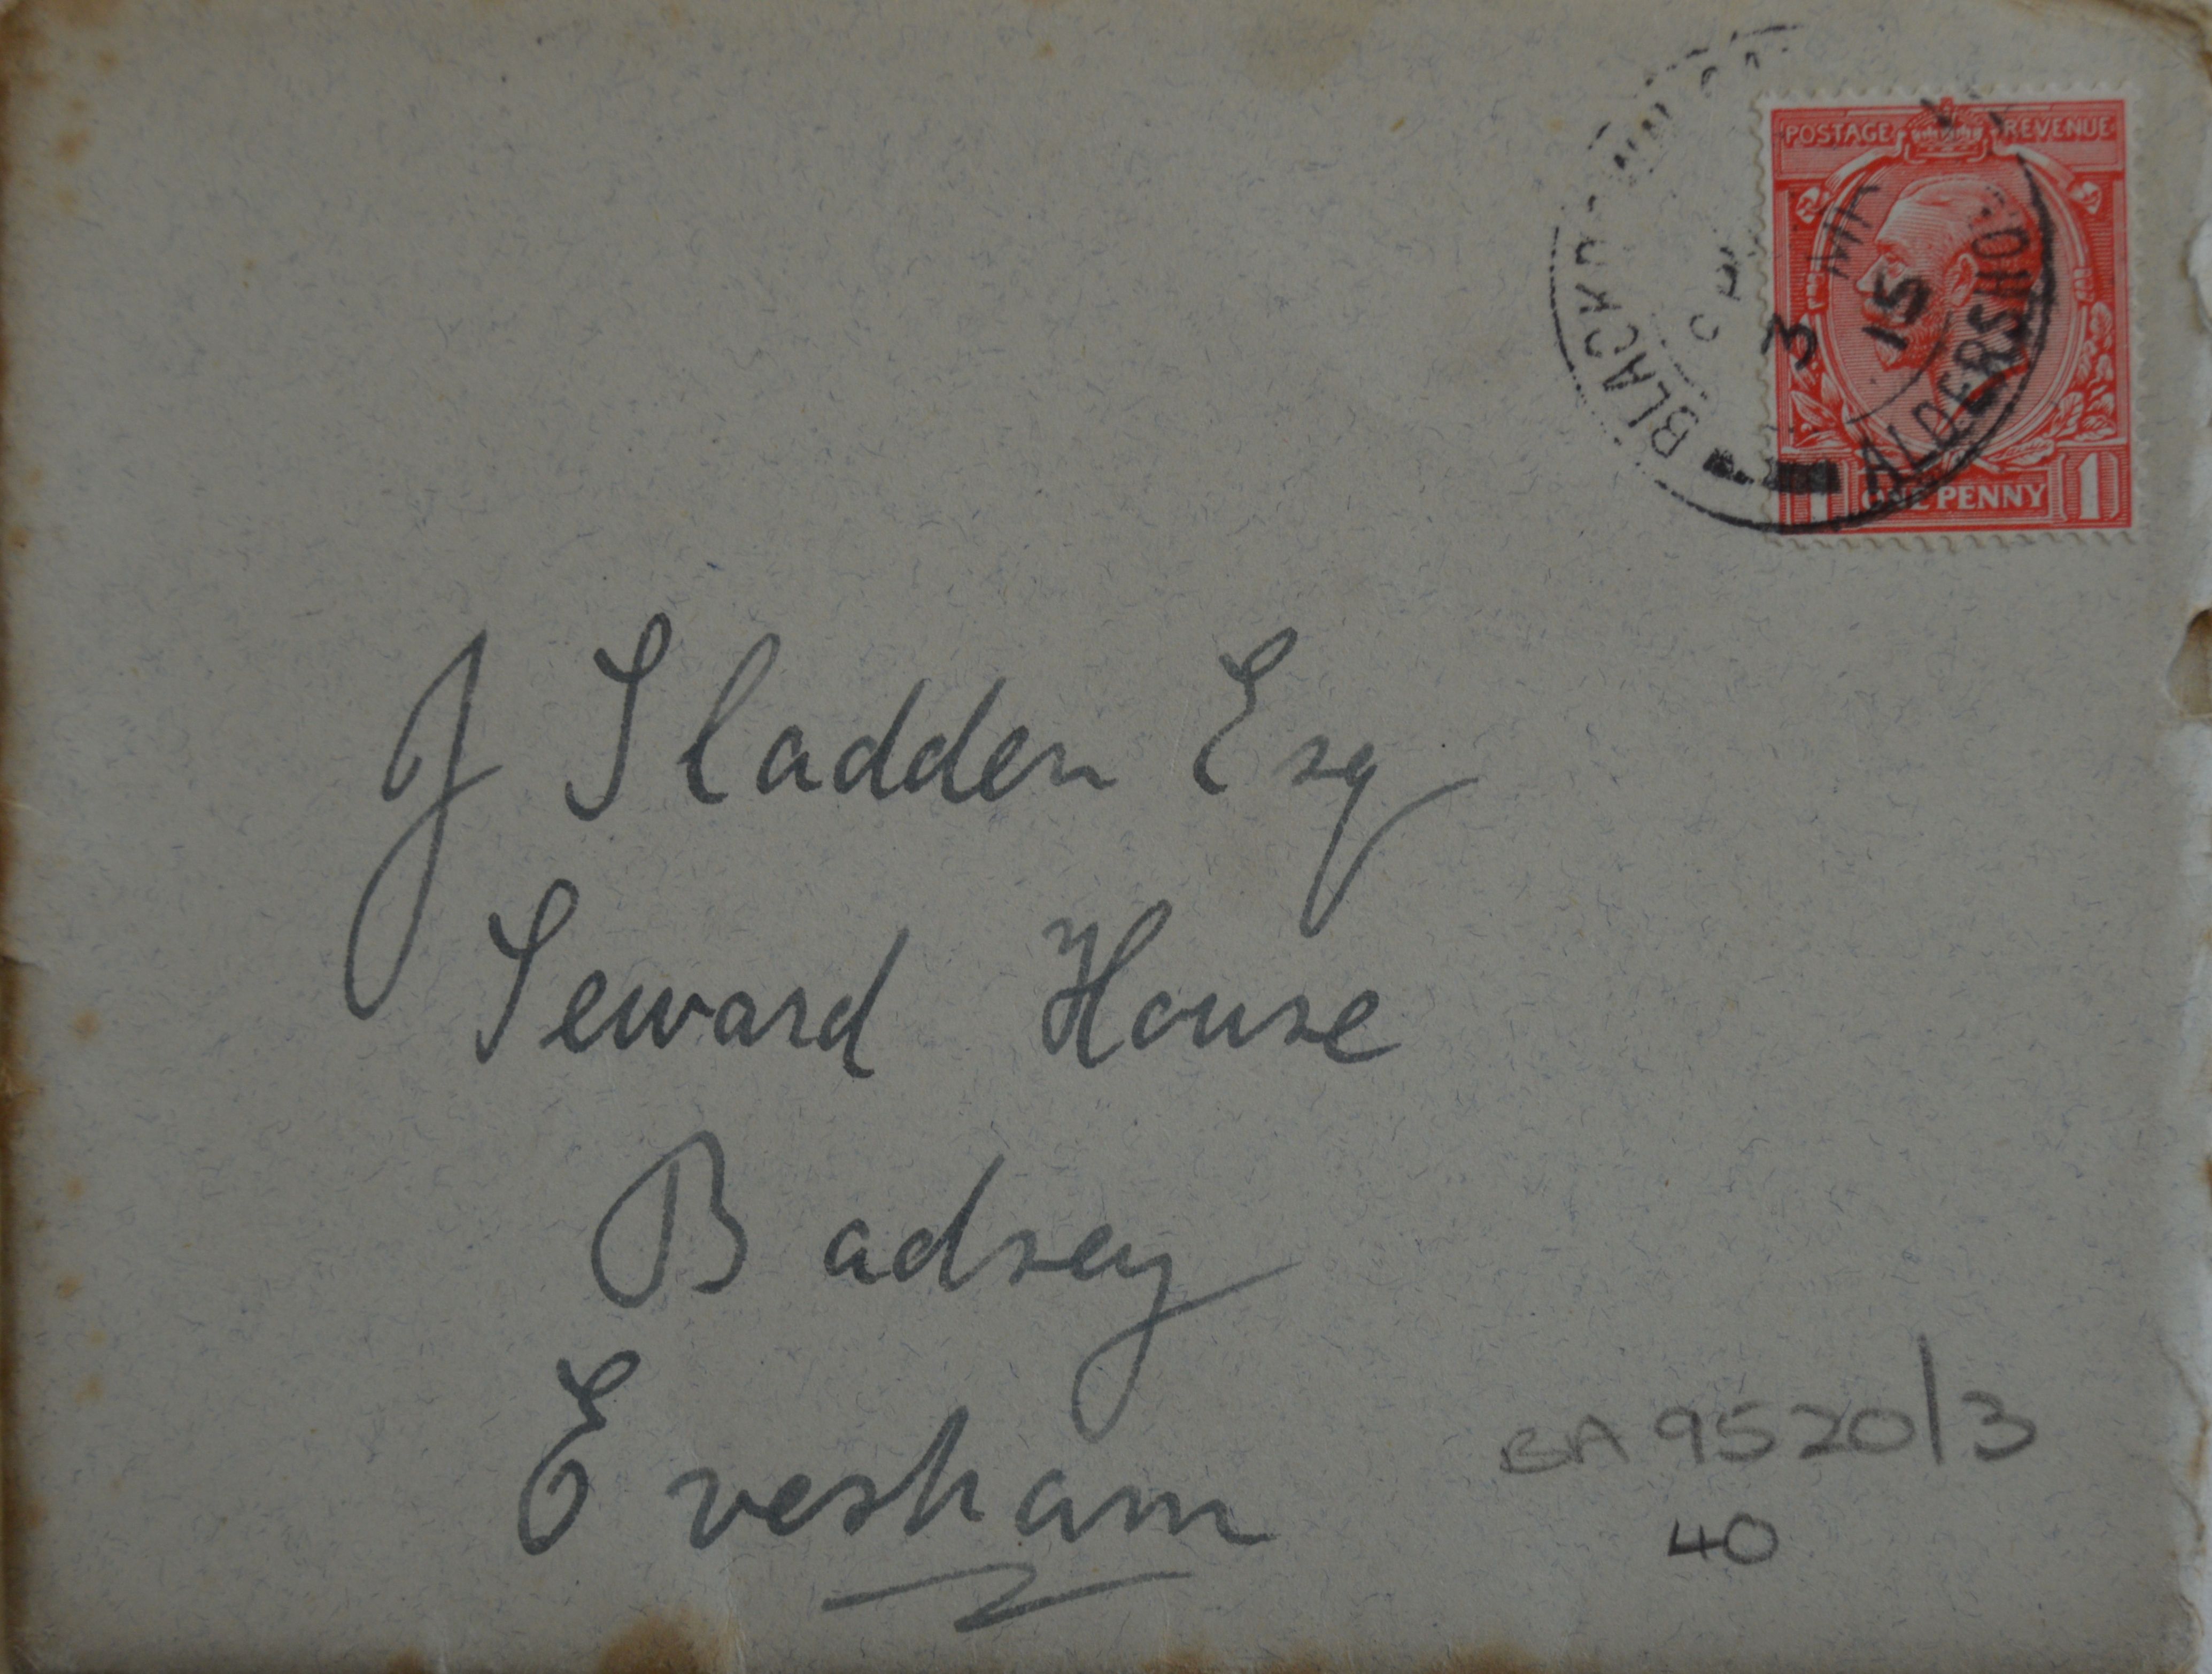 POSTAGE REVENUE
BLACK
3
15
ALDERSHOT
ONE PENNY
1 1
J Sladden Esq
Seward House
Badsey
Evesham
BA 9520/3
40